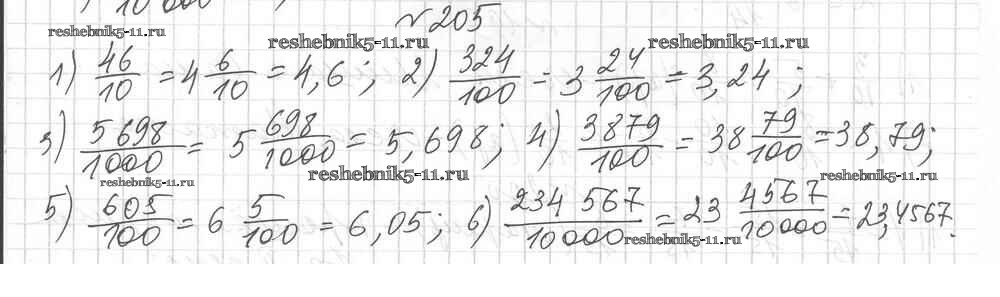 10 000
№ 205
reshebnik5-11.ru
reshebnik5-11.ru reshebnik5-11.ru
1) 46/10 = 4 6/10 = 4,6; 2) 324/100 = 3 24/100 = 3,24;
3) 5 698/1000 = 5 698/1000 = 5,698; 4) 3879/100 = 38 79/100 = 38,79;
reshebnik5-11.ru reshebnik5-11.ru reshebnik5-11.ru
5) 605/100 = 6 5/100 = 6,05; 6) 234 567/10 000 = 23 4567/10 000 = 23,4567.
reshebnik5-11.ru